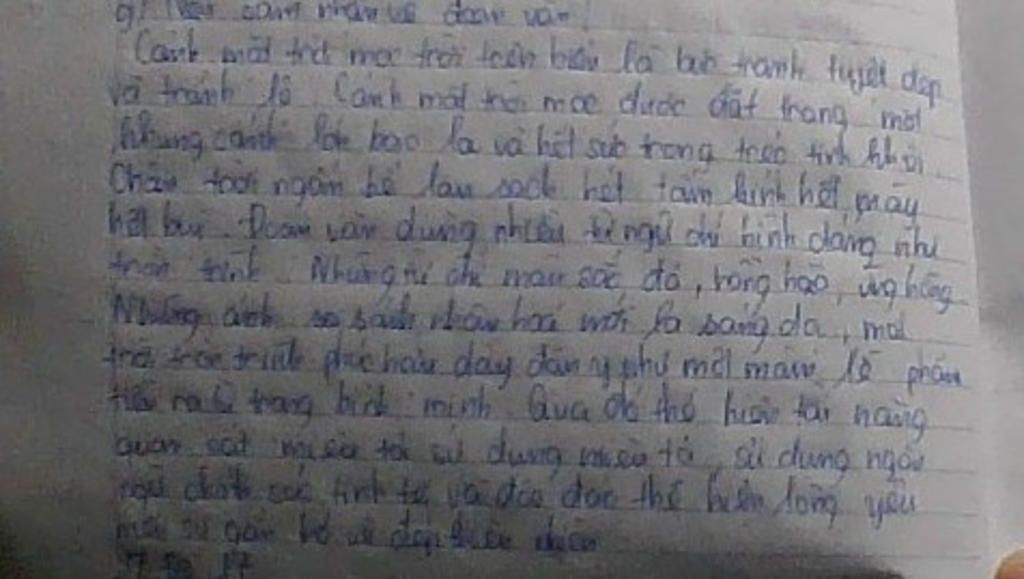 g) Nêu cảm nhận về đoạn văn
Cảnh mặt trời mọc trên biển là bức tranh tuyệt đẹp
và tráng lệ. Cảnh mặt trời mọc được đặt trong một
khung cảnh bao la và hết sức trong trẻo tinh khôi
Chân trời ngấn bể lau sạch hết tấm kính hết mây
hết bụi. Đoạn văn dùng nhiều từ ngữ chỉ hình dáng như
tròn trĩnh. Những từ chỉ màu sắc đỏ, hồng hào, ửng hồng
Những so sánh nhân hoá mới sáng, mặt
trời tròn trĩnh phúc hậu đầy đặn như một mâm lễ phẩm
tiến ra từ trong bình minh. Qua đó thể hiện tài năng
quan sát miêu tả sử dụng miêu tả, sử dụng ngôn
ngữ sắc tinh tế và độc đáo thể hiện lòng yêu
gắn bó vẻ đẹp thiên